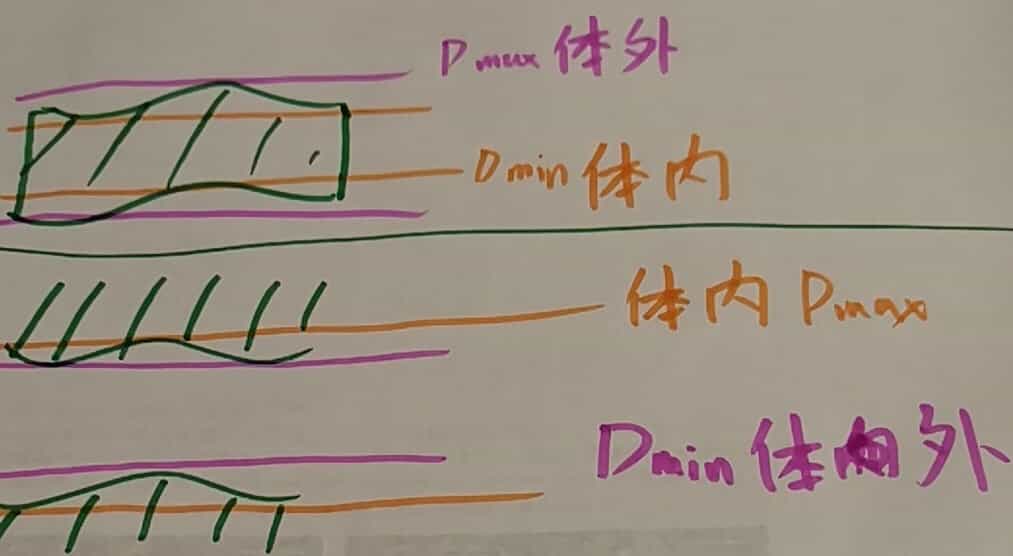 Dmax 体外
Dmin 体内
体内 Dmax
Dmin 体外